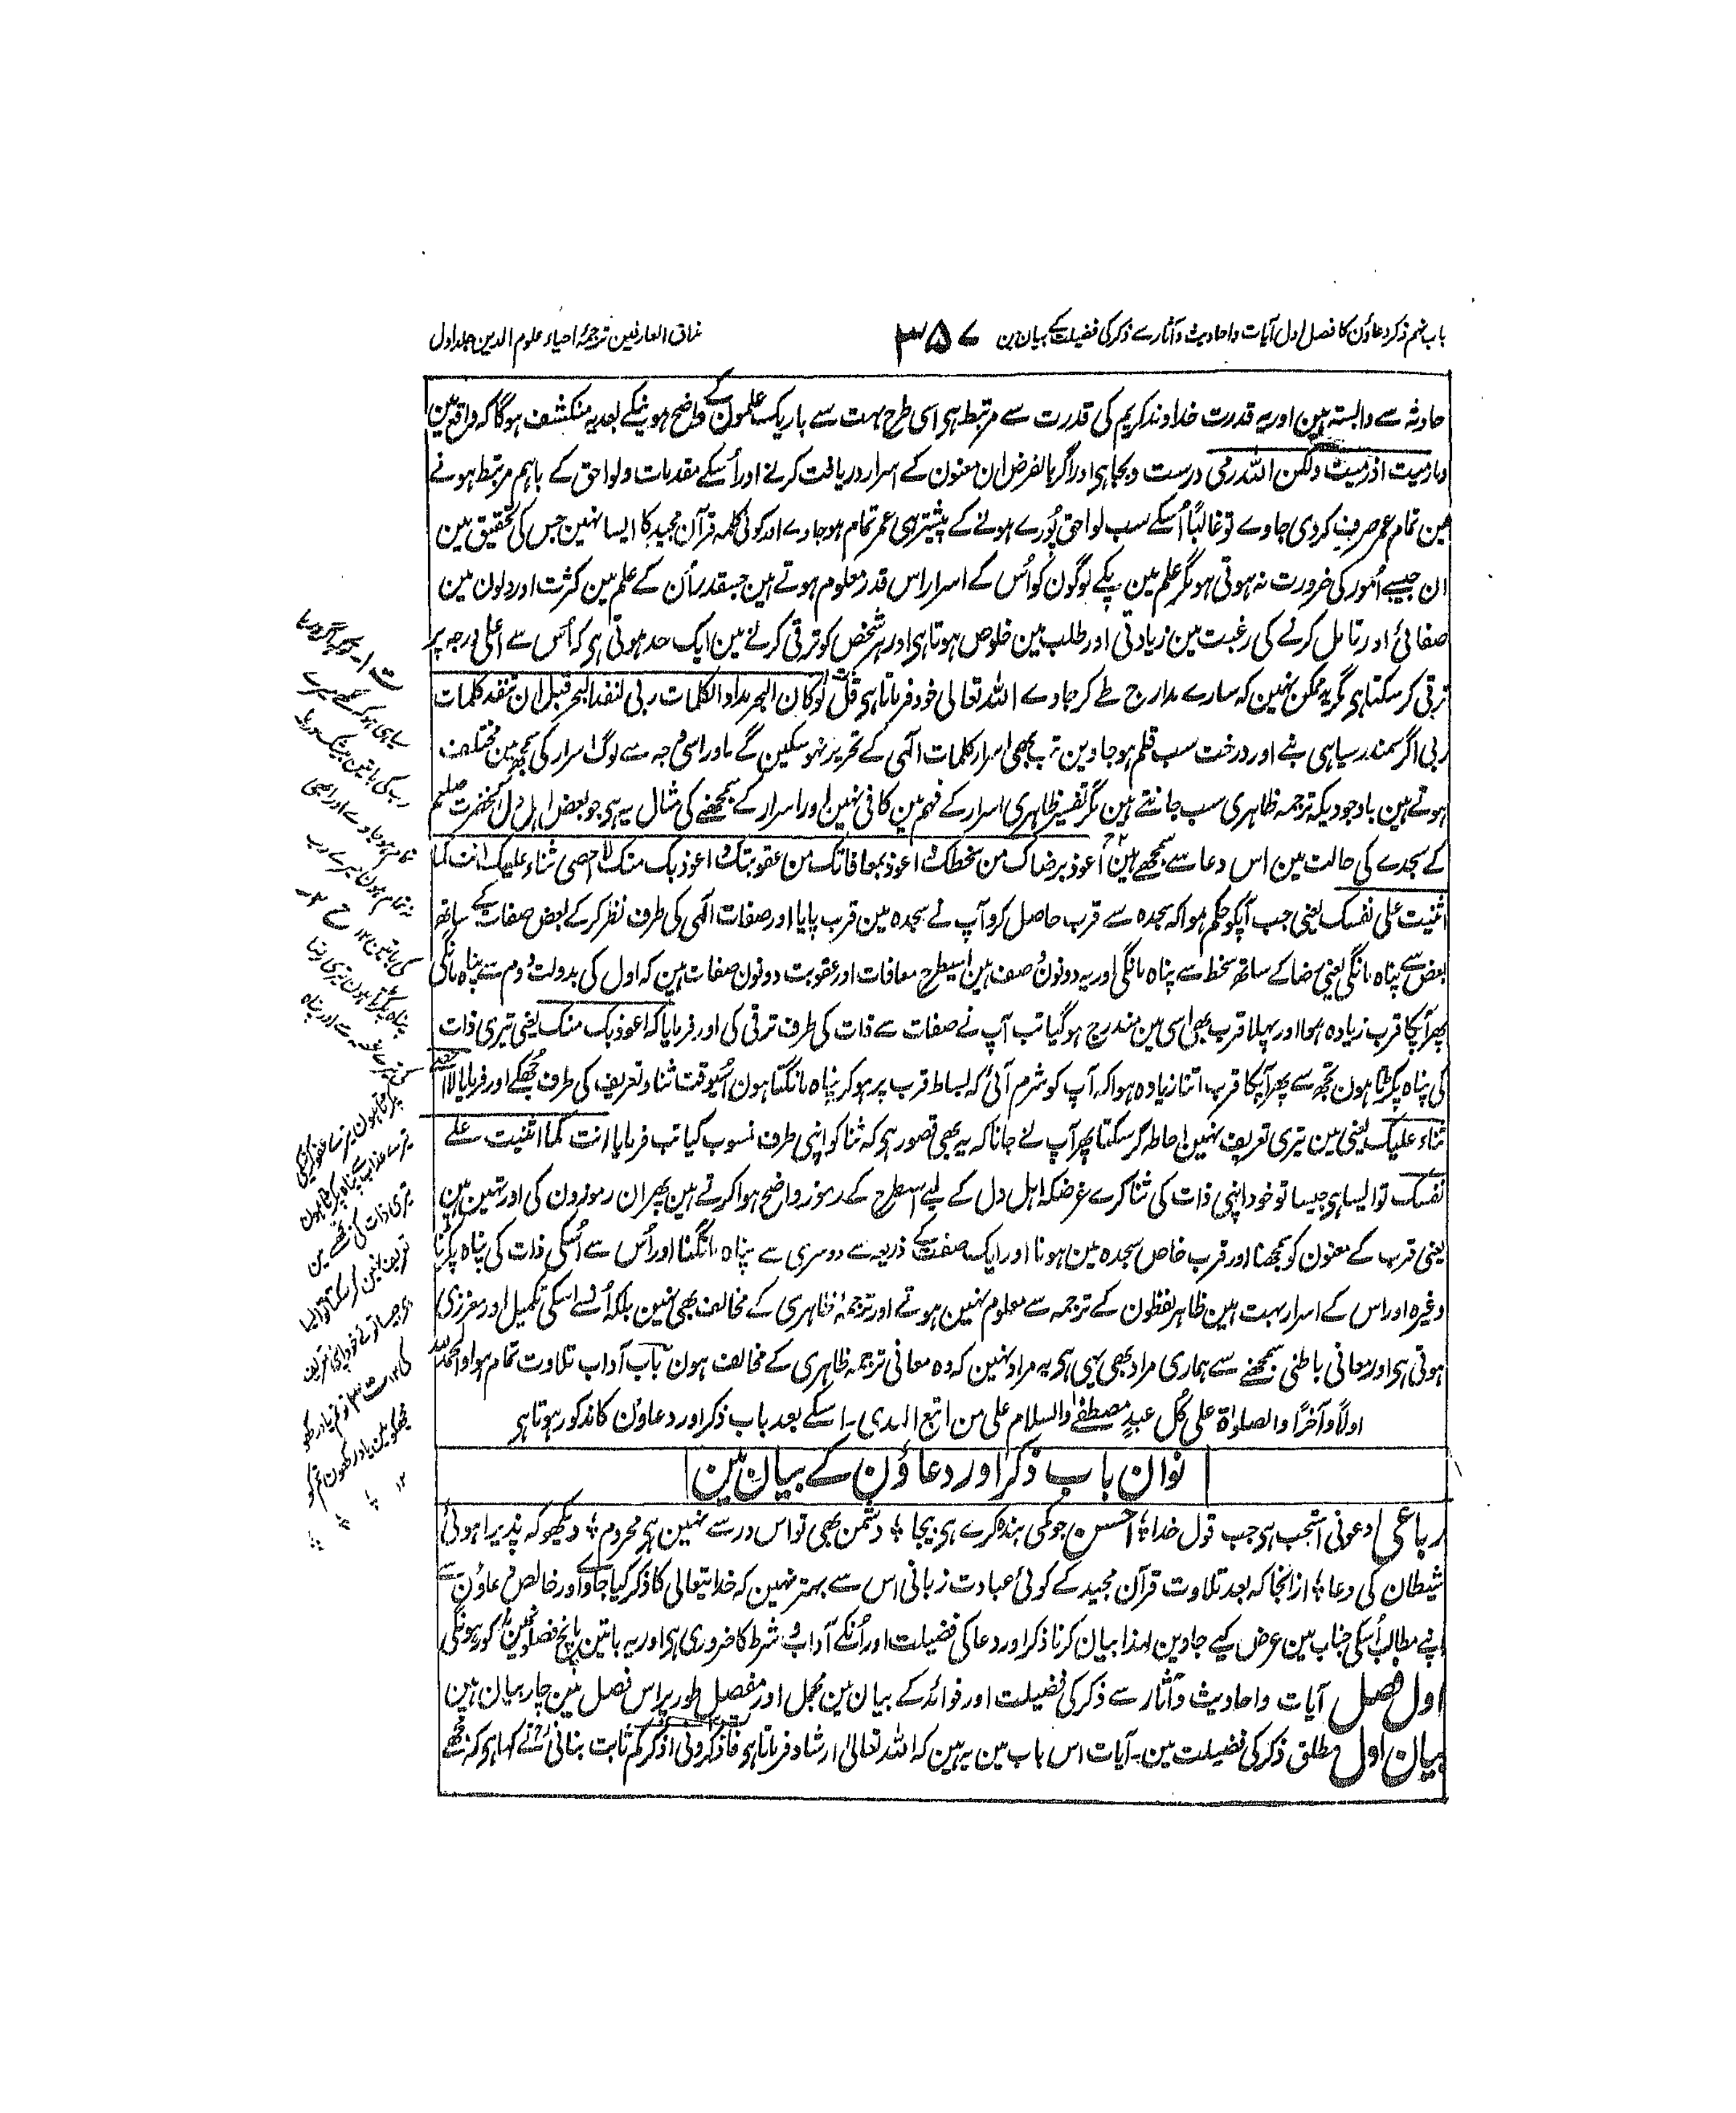 باب نہم ذکر دعاؤن کا فصل اول آیات و احادیث و آثار سے ذکر کی فضیلت کے بیان مین
۳۵۷
مذاق العارفین ترجمۂ احیاء علوم الدین جلد اول
حادثہ سے وابستہ ہین اور یہ قدرت خداوند کریم کی قدرت سے مرتبط ہی اسی طرح بہت سے باریک علمون کے واضح ہونیکے بعد یہ منکشف ہوگا کہ واقع مین
وما رمیت اذ رمیت ولکن اللہ رمی درست و بجا ہی اور اگر بالفرض ان معنون کے اسرار دریافت کرنے اور اُسکے مقدمات و لواحق کے باہم مرتبط ہونے
مین تمام عمر صرف کردی جاوے تو غالباً اُسکے سب لواحق پُورے ہونے کے پیشتر ہی عمر تمام ہوجاوے اور کوئی کلمہ قرآن مجید کا ایسا نہین جس کی تحقیق مین
ان جیسے اُمور کی ضرورت نہ ہوتی ہو مگر علم مین پکے لوگون کو اُس کے اسرار اس قدر معلوم ہوتے ہین جسقدر اُن کے علم مین کثرت اور دلون مین
صفائی اور تامل کرنے کی رغبت مین زیادتی اور طلب مین خلوص ہوتا ہی اور ہر شخص کو ترقی کرنے مین ایک حد ہوتی ہی کہ اُس سے اعلیٰ درجہ پر
ترقی کر سکتا ہی مگر یہ ممکن نہین کہ سارے مدارج طے کر جاوے اللہ تعالی خود فرماتا ہی قل لو کان البحر مدادا لکلمات ربی لنفد البحر قبل ان تنفد کلمات
ربی اگر سمندر سیاہی بنے اور درخت سب قلم ہوجاوین تب بھی اسرار کلمات الٰہی کے تحریر نہو سکین گے اور اسی وجہ سے لوگ اسرار کی سمجھ مین مختلف
ہوتے ہین باوجودیکہ ترجمہ ظاہری سب جانتے ہین مگر تفسیر ظاہری اسرار کے فہم مین کافی نہین اور اسرار کے سمجھنے کی مثال یہ ہی جو بعض اہل دل آنحضرت صلعم
کے سجدے کی حالت مین اس دعا سے سمجھے ہین اعوذ برضاک من سخطک و اعوذ بمعافاتک من عقوبتک و اعوذ بک منک لا احصی ثناء علیک انت کما
اثنیت علی نفسک یعنی جب آپکو حکم ہوا کہ سجدہ سے قرب حاصل کرو آپ نے سجدہ مین قرب پایا اور صفات الٰہی کی طرف نظر کرکے بعض صفات کے ساتھ
بعض سے پناہ مانگی یعنی رضا کے ساتھ سخط سے پناہ مانگی اور یہ دونون وصف ہین اسیطرح معافات اور عقوبت دونون صفات ہین کہ اول کی بدولت دوم سے پناہ مانگی
پھر آپکا قرب زیادہ ہوا اور پہلا قرب بھی اسی مین مندرج ہوگیا تب آپ نے صفات سے ذات کی طرف ترقی کی اور فرمایا کہ اعوذ بک منک یعنی تیری ذات
کی پناہ پکڑتا ہون تجھ سے پھر آپکا قرب اتنا زیادہ ہوا کہ آپ کو شرم آئی کہ بساط قرب پر ہوکر پناہ مانگتا ہون اُسوقت ثنا و تعریف کی طرف جُھکے اور فرمایا لا احصی
ثناء علیک یعنی مین تیری تعریف نہین احاطہ کر سکتا پھر آپ نے جانا کہ یہ بھی قصور ہی کہ ثنا کو اپنی طرف نسوب کیا تب فرمایا انت کما اثنیت علے
نفسک تو ایسا ہی جیسا تو خود اپنی ذات کی ثنا کرے غرضکہ اہل دل کے لیے اسطرح کے رموز واضح ہوا کرتے ہین پھر ان رموزون کی اور تہین ہین
یعنی قرب کے معنون کو سمجھنا اور قرب خاص سجدہ مین ہونا اور ایک صفت کے ذریعہ سے دوسری سے پناہ مانگنا اور اُس سے اُسکی ذات کی پناہ پکڑنا
وغیرہ اور اس کے اسرار بہت ہین ظاہر لفظون کے ترجمہ سے معلوم نہین ہوتے اور ترجمۂ ظاہری کے مخالف بھی نہین بلکہ اُنسے اسکی تکمیل اور مغزرزی
ہوتی ہی اور معانی باطنی سمجھنے سے ہماری مراد بھی یہی ہی یہ مراد نہین کہ وہ معانی ترجمہ ظاہری کے مخالف ہون باب آداب تلاوت تمام ہوا والحمد للہ
اولاً و آخراً والصلوٰة علی کل عبد مصطفے والسلام علی من اتبع الہدی۔ اسکے بعد باب ذکر اور دعاؤن کا مذکور ہوتا ہی
نوان باب ذکر اور دعاؤن کے بیان مین
رباعی ادعونی استجب ہی جب قول خدا ؛ احسن جو کمی بندہ کرے ہی بیجا ؛ دشمن بھی تو اس در سے نہین ہی محروم ؛ دیکھو کہ پذیرا ہوئی
شیطان کی دعا ؛ ازانجا کہ بعد تلاوت قرآن مجید کے کوئی عبادت زبانی اس سے بہتر نہین کہ خدایتعالی کا ذکر کیا جاوے اور خالص دعاؤن سے
اپنے مطالب اُسکی جناب مین عرض کیے جاوین لہذا بیان کرنا ذکر اور دعا کی فضیلت اور اُنکے آداب و شرط کا ضروری ہی اور یہ باتین پانچ فصلونمین مذکور ہونگی
اول فصل آیات و احادیث و آثار سے ذکر کی فضیلت اور فوائد کے بیان مین مجمل اور مفصل طور پر اس فصل مین چار بیان ہین
بیان اول مطلق ذکر کی فضیلت مین۔ آیات اس باب مین یہ ہین کہ اللہ تعالیٰ ارشاد فرماتا ہی فاذکرونی اذکرکم ثابت بنانی رح نے کہا ہی کہ مجھے
سیاہی ہو کہ لکھے
رب کی باتین بیشک
تمام ہو جاوے اور ابھی
نہ تمام ہون میرے رب
کی باتین ۱۲
پناہ پکڑتا ہون تیری رضا
تیرے غصہ سے اور پناہ
پکڑتا ہون تیرے عفو کی
تیرے عذاب سے پناہ پکڑتا ہون
تیری ذات کی تجھسے مین
تعریف نہین کر سکتا تو ایسا
ہی جیسا تو نے خود اپنی تعریف
کی ۱۲ ت ۳ تو تم یاد رکھو
مجھکو مین یاد رکھون تم کو
۱۲